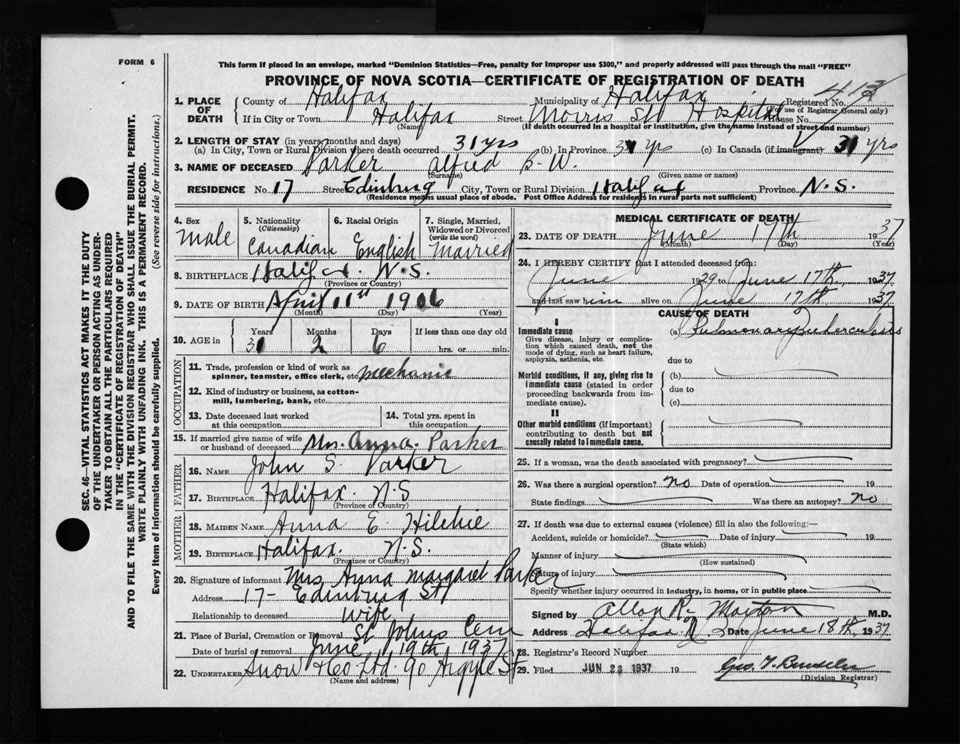 FORM 6
This form if placed in an envelope, marked “Dominion Statistics—Free, penalty for improper use $300,” and properly addressed will pass through the mail “FREE”
PROVINCE OF NOVA SCOTIA—CERTIFICATE OF REGISTRATION OF DEATH
SEC. 46—VITAL STATISTICS ACT MAKES IT THE DUTY
OF THE UNDERTAKER OR PERSON ACTING AS UNDER-
TAKER TO OBTAIN ALL THE PARTICULARS REQUIRED
IN THE “CERTIFICATE OF REGISTRATION OF DEATH”
AND TO FILE THE SAME WITH THE DIVISION REGISTRAR WHO SHALL ISSUE THE BURIAL PERMIT.
WRITE PLAINLY WITH UNFADING INK. THIS IS A PERMANENT RECORD.
Every item of information should be carefully supplied. (See reverse side for instructions.)
1. PLACE OF DEATH County of Halifax Municipality of Halifax Registered No. 413
(For use of Registrar General only)
If in City or Town Halifax Street Morris St Hospital House No.
(Name) (If death occurred in a hospital or institution, give the name instead of street and number)
2. LENGTH OF STAY (in years, months and days)
(a) In City, Town or Rural Division where death occurred 31 yrs (b) In Province 31 yrs (c) In Canada (if immigrant) 31 yrs
3. NAME OF DECEASED Parker Alfred B. W.
(Surname) (Given name or names)
RESIDENCE No. 17 Street Edinburg City, Town or Rural Division Halifax Province N.S.
(Residence means usual place of abode. Post Office Address for residents in rural parts not sufficient)
4. Sex 5. Nationality (Citizenship) 6. Racial Origin 7. Single, Married, Widowed or Divorced (write the word)
Male Canadian English Married
8. BIRTHPLACE Halifax N.S.
(Province or Country)
9. DATE OF BIRTH April 11th 1906
(Month) (Day) (Year)
10. AGE in Years Months Days If less than one day old
31 2 6 hrs. or min.
OCCUPATION
11. Trade, profession or kind of work as spinner, teamster, office clerk, etc. Mechanic
12. Kind of industry or business, as cotton-mill, lumbering, bank, etc.
13. Date deceased last worked at this occupation
14. Total yrs. spent in this occupation
15. If married give name of wife or husband of deceased Mrs. Anna. Parker
FATHER
16. NAME John S. Parker
17. BIRTHPLACE Halifax N.S
(Province or Country)
MOTHER
18. MAIDEN NAME Anna E. Hilchie
19. BIRTHPLACE Halifax. N.S.
(Province or Country)
20. Signature of informant Mrs. Anna Margaret Parker
Address 17- Edinburg St
Relationship to deceased Wife
21. Place of Burial, Cremation or Removal St Johns Cem
Date of burial or removal June 19th 1937
22. UNDERTAKER Snow & Co. Ltd. 90 Argyle St
(Name and address)
MEDICAL CERTIFICATE OF DEATH
23. DATE OF DEATH June 17th 1937
(Month) (Day) (Year)
24. I HEREBY CERTIFY that I attended deceased from:
June 1929 to June 17th 1937
and last saw him alive on June 17th 1937
CAUSE OF DEATH
I
Immediate cause (a) Pulmonary Tuberculosis
Give disease, injury or complication which caused death, not the mode of dying, such as heart failure, asphyxia, asthenia, etc.
due to
Morbid conditions, if any, giving rise to immediate cause (stated in order proceeding backwards from immediate cause).
(b)
due to
(c)
II
Other morbid conditions (if important) contributing to death but not causally related to immediate cause.
25. If a woman, was the death associated with pregnancy?
26. Was there a surgical operation? no Date of operation 19
State findings Was there an autopsy? no
27. If death was due to external causes (violence) fill in also the following:—
Accident, suicide or homicide? Date of injury 19
(State which)
Manner of injury
(How sustained)
Nature of injury
Specify whether injury occurred in industry, in home, or in public place
Signed by Allan R. Morton M.D.
Address Halifax N.S. Date June 18th, 1937
28. Registrar's Record Number
29. Filed JUN 23 1937 19
(Division Registrar)